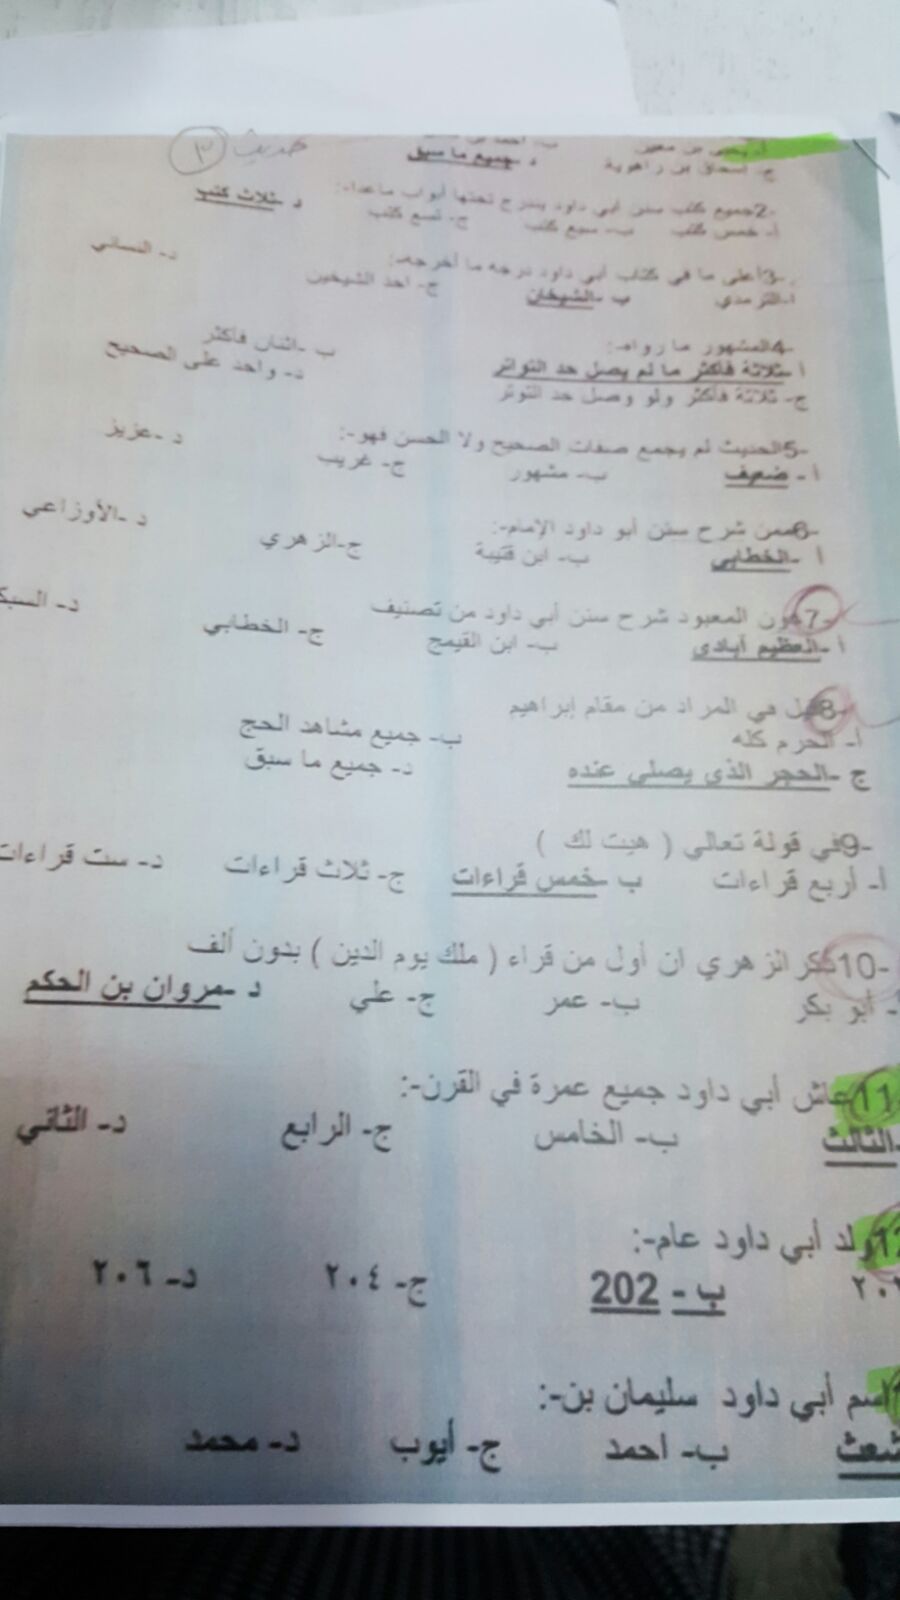 حديث ٣
أ- يحيى بن معين ب- احمد بن
ج- اسحاق بن راهوية د- جميع ما سبق
2- جميع كتب سنن أبي داود يندرج تحتها أبواب ماعدا:-
أ- خمس كتب ب- سبع كتب ج- تسع كتب د- ثلاث كتب
3- أعلى ما في كتاب أبي داود درجه ما أخرجه:-
أ- الترمذي ب- الشيخان ج- احد الشيخين د- النسائي
4- المشهور ما رواه:
أ- ثلاثة فأكثر ما لم يصل حد التواتر ب- اثنان فأكثر
ج- ثلاثة فأكثر ولو وصل حد التوتر د- واحد على الصحيح
5- الحديث لم يجمع صفات الصحيح ولا الحسن فهو:-
أ- ضعيف ب- مشهور ج- غريب د- عزيز
6- ممن شرح سنن أبو داود الإمام:-
أ- الخطابي ب- ابن قتيبة ج- الزهري د- الأوزاعي
7- عون المعبود شرح سنن أبي داود من تصنيف
أ- العظيم أبادي ب- ابن القيمج ج- الخطابي د- السبك
8- قيل في المراد من مقام إبراهيم
أ- الحرم كله ب- جميع مشاهد الحج
ج- الحجر الذي يصلى عنده د- جميع ما سبق
9- في قولة تعالي ( هيت لك )
أ- أربع قراءات ب- خمس قراءات ج- ثلاث قراءات د- ست قراءات
10- ذكر الزهري ان أول من قراء ( ملك يوم الدين ) بدون ألف
- أبو بكر ب- عمر ج- علي د- مروان بن الحكم
11 عاش أبي داود جميع عمرة في القرن:-
- الثالث ب- الخامس ج- الرابع د- الثاني
12 ولد أبي داود عام:-
ب- 202 ج- ٢٠٤ د- ٢٠٦
اسم أبي داود سليمان بن:-
شعث ب- احمد ج- أيوب د- محمد